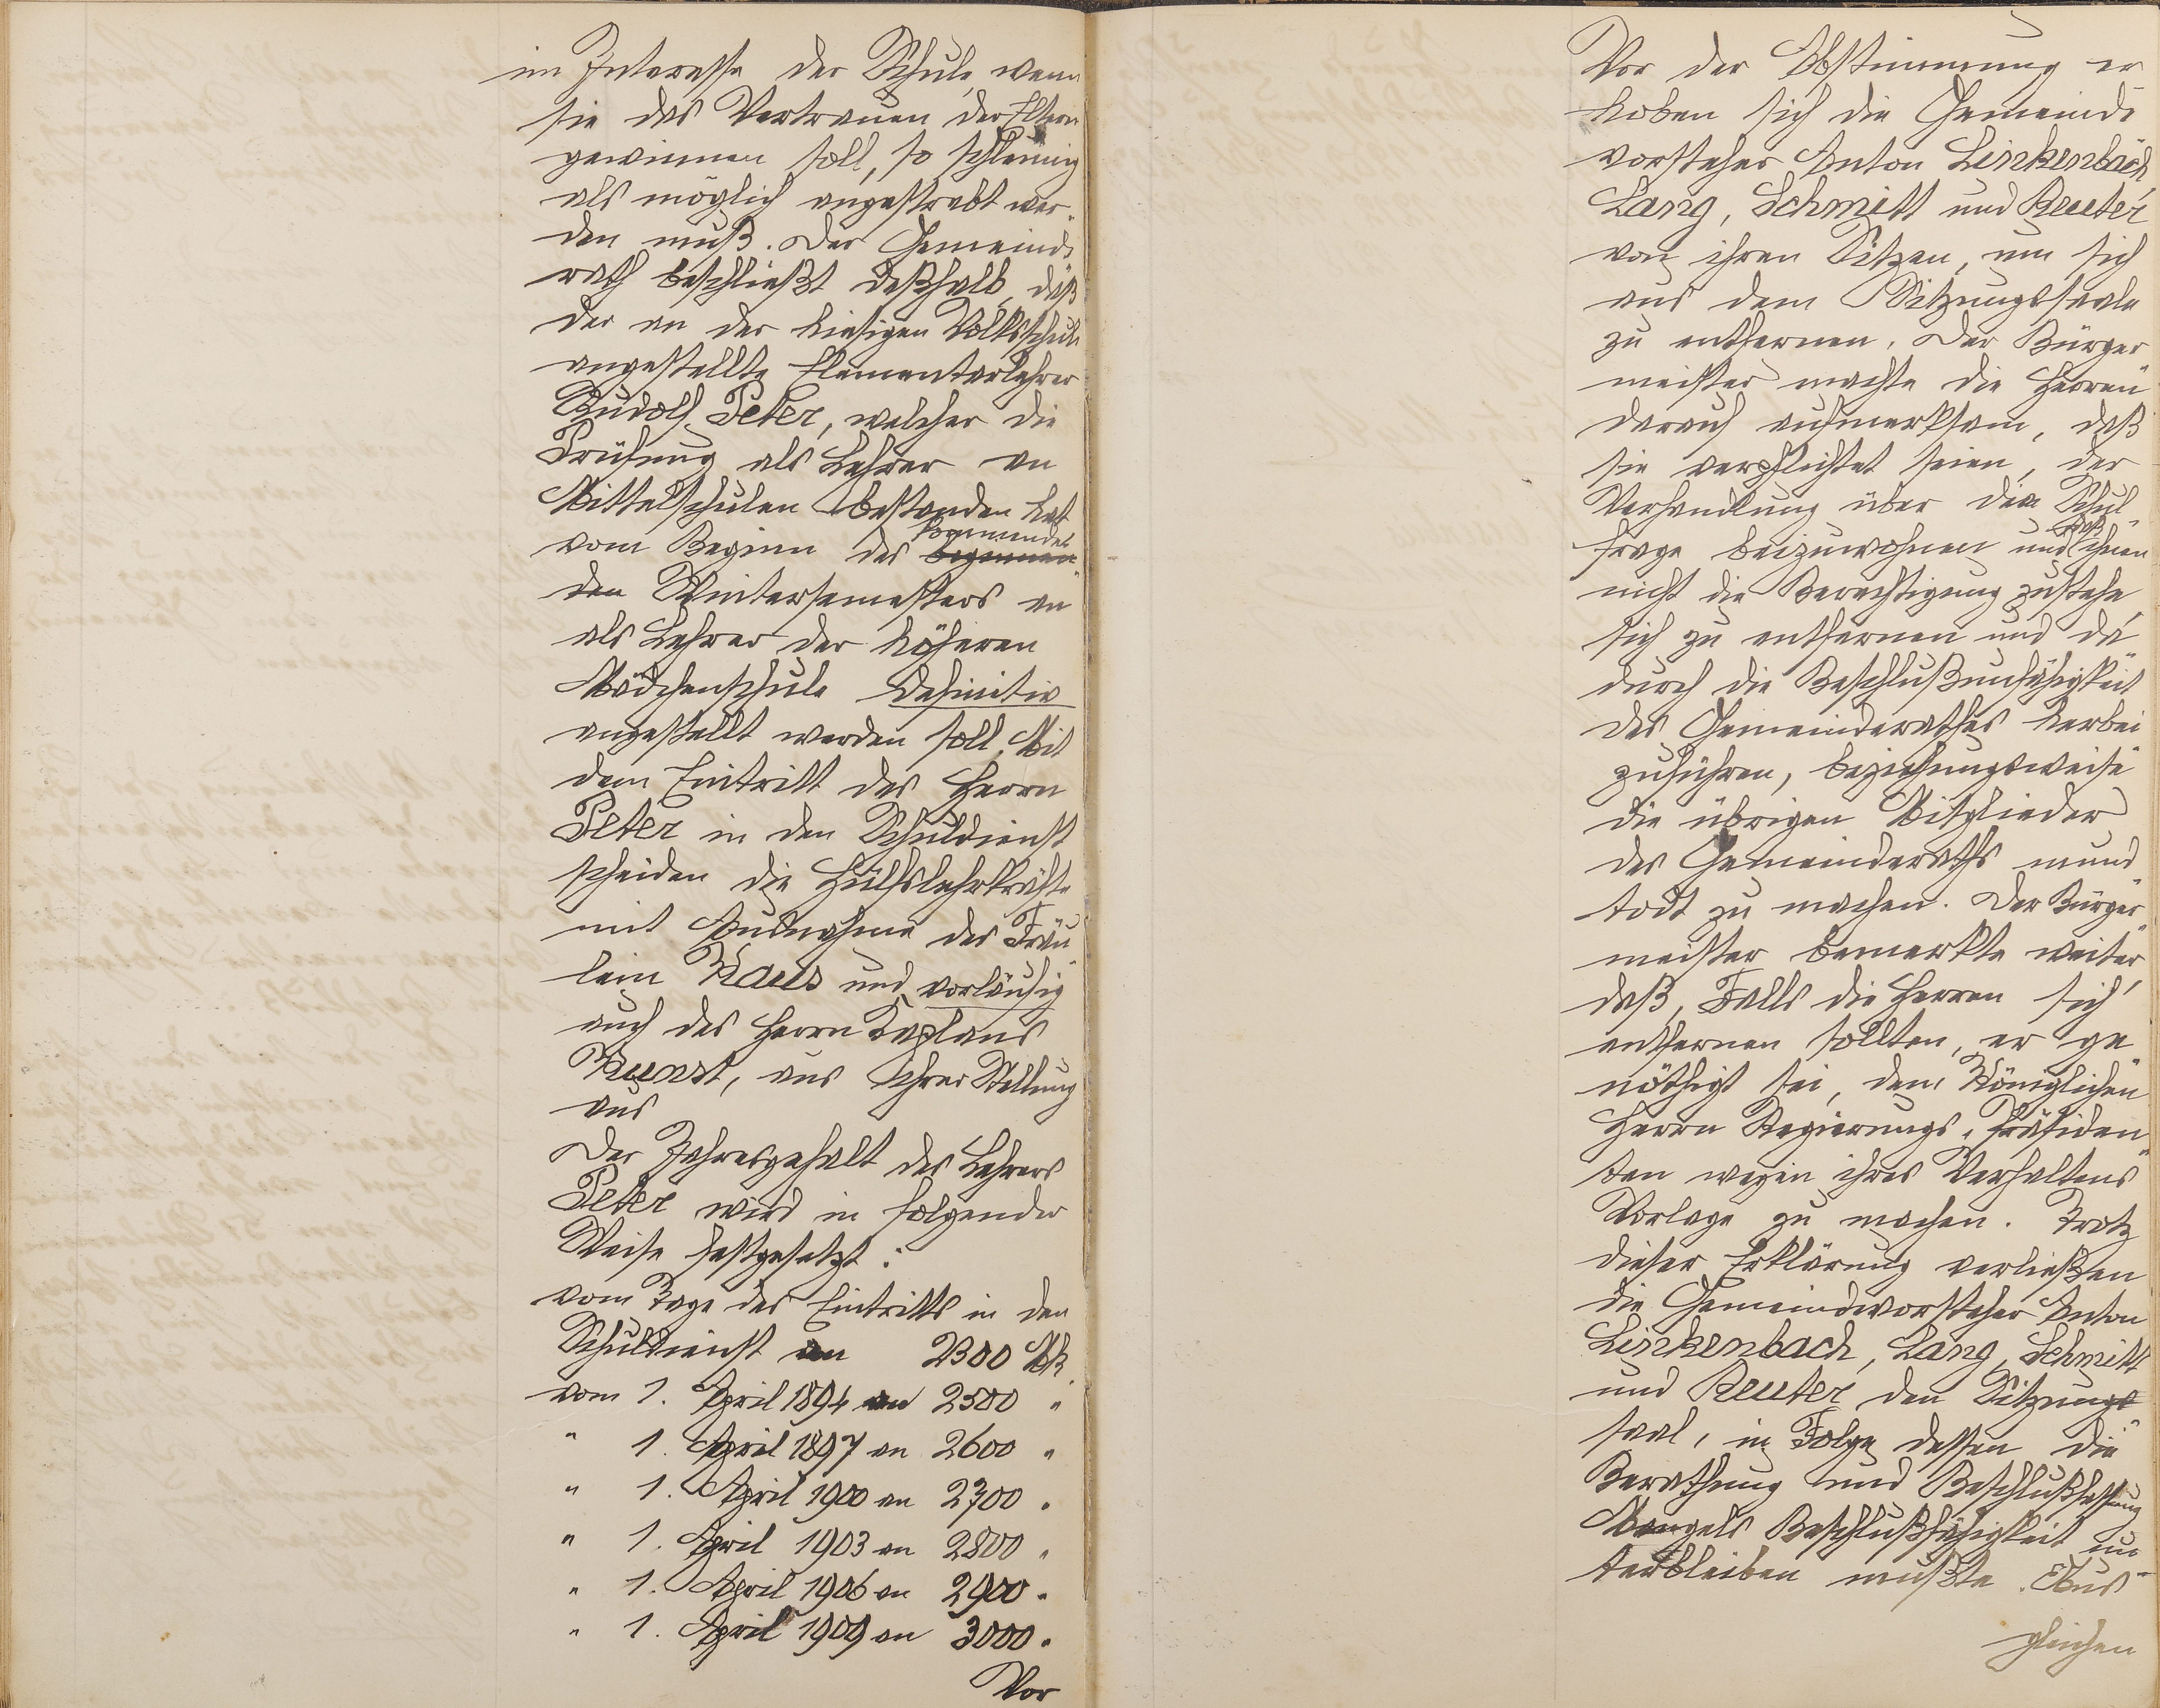 im Interesse der Schule, wenn
sie das Vertrauen der Eltern
gewinnen soll, so schleunig
als möglich angestrebt wer-
den muß. Der Gemeinde-
rath beschließt deßhalb, daß
der an der hiesigen Volksschule
angestellte Elementarlehrer
Rudolf Peter, welcher die
Prüfung als Lehrer an
Mittelschulen bestanden hat
kommenden
vom Beginn des beginnen-
den Wintersemesters an
als Lehrer der höheren
Mädchenschule definitiv
angestellt werden soll. Mit
dem Eintritt des Herrn
Peter in den Schuldienst
scheiden die Hülfslehrkräfte
mit Ausnahme des Fräu-
lein Kaus und vorläufig
auch des Herrn Kaplans
Kunst, aus ihrer Stellung
aus
Der Jahresgehalt des Lehrers
Peter wird in folgender
Weise festgesetzt:
vom Tage des Eintritts in den
Schuldienst an 2300 Mk
vom 1. April 1894 an 2500 "
" 1. April 1897 an 2600 "
" 1. April 1900 an 2700 "
" 1. April 1903 an 2800 "
" 1. April 1906 an 2900 "
" 1. April 1909 an 3000 "
Vor
Vor der Abstimmung er-
hoben sich die Gemeinde-
vorsteher Anton Linkenbach,
Lang, Schmitt und Reuter
von ihren Sitzen, um sich
aus dem Sitzungssaale
zu entfernen. Der Bürger-
meister machte die Herren
darauf aufmerksam, daß
sie verpflichtet seien, der
Verhandlung über die Schul-
daß
frage beizuwohnen und ihnen
nicht die Berechtigung zustehe,
sich zu entfernen und da-
durch die Beschlußunfähigkeit
des Gemeinderathes herbei-
zuführen, beziehungsweise
die übrigen Mitglieder
des Gemeinderaths mund-
todt zu machen. Der Bürger-
meister bemerkte weiter,
daß, Falls die Herren sich
entfernen sollten, er ge-
nöthigt sei, dem Königlichen
Herrn Regierungs-Präsiden-
ten wegen ihres Verhaltens
Vorlage zu machen. Trotz
dieser Erklärung verließen
die Gemeindevorsteher Anton
Linkenbach, Lang, Schmitt
und Reuter den Sitzungs-
saal, in Folge dessen die
Berathung und Beschlußfassung
Mangels Beschlußfähigkeit un-
terbleiben mußte.
gleichen